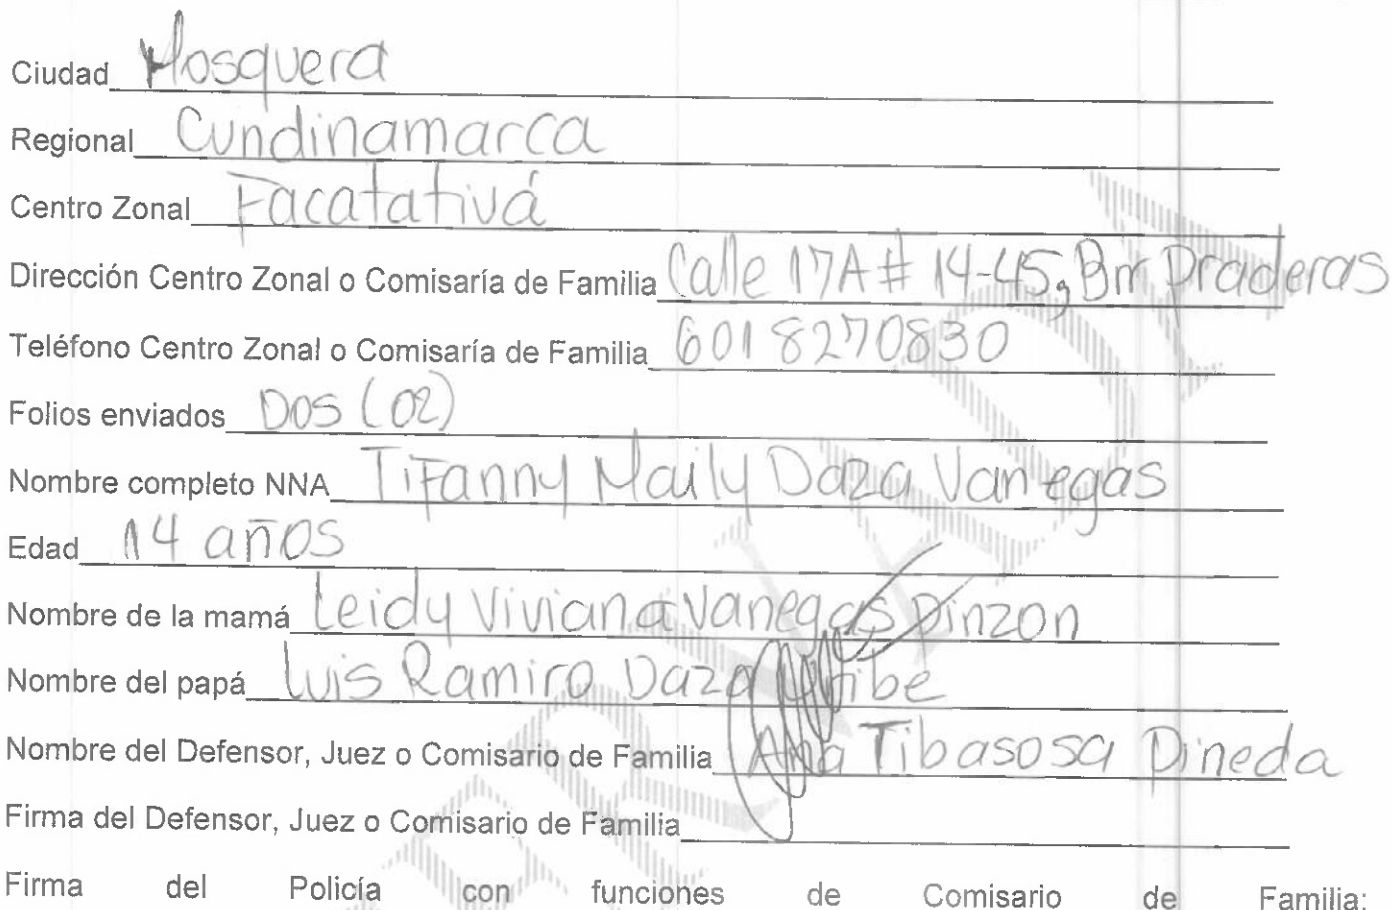 Ciudad Mosquera
Regional Cundinamarca
Centro Zonal Facatativá
Dirección Centro Zonal o Comisaría de Familia Calle 17A # 14-45, Brr Praderas
Teléfono Centro Zonal o Comisaría de Familia 6018270830
Folios enviados Dos (02)
Nombre completo NNA Tifanny Maily Daza Vanegas
Edad 14 años
Nombre de la mamá Leidy Viviana Vanegas Pinzon
Nombre del papá Luis Ramiro Daza Uribe
Nombre del Defensor, Juez o Comisario de Familia Ana Tibasosa Pineda
Firma del Defensor, Juez o Comisario de Familia
Firma del Policía con funciones de Comisario de Familia: